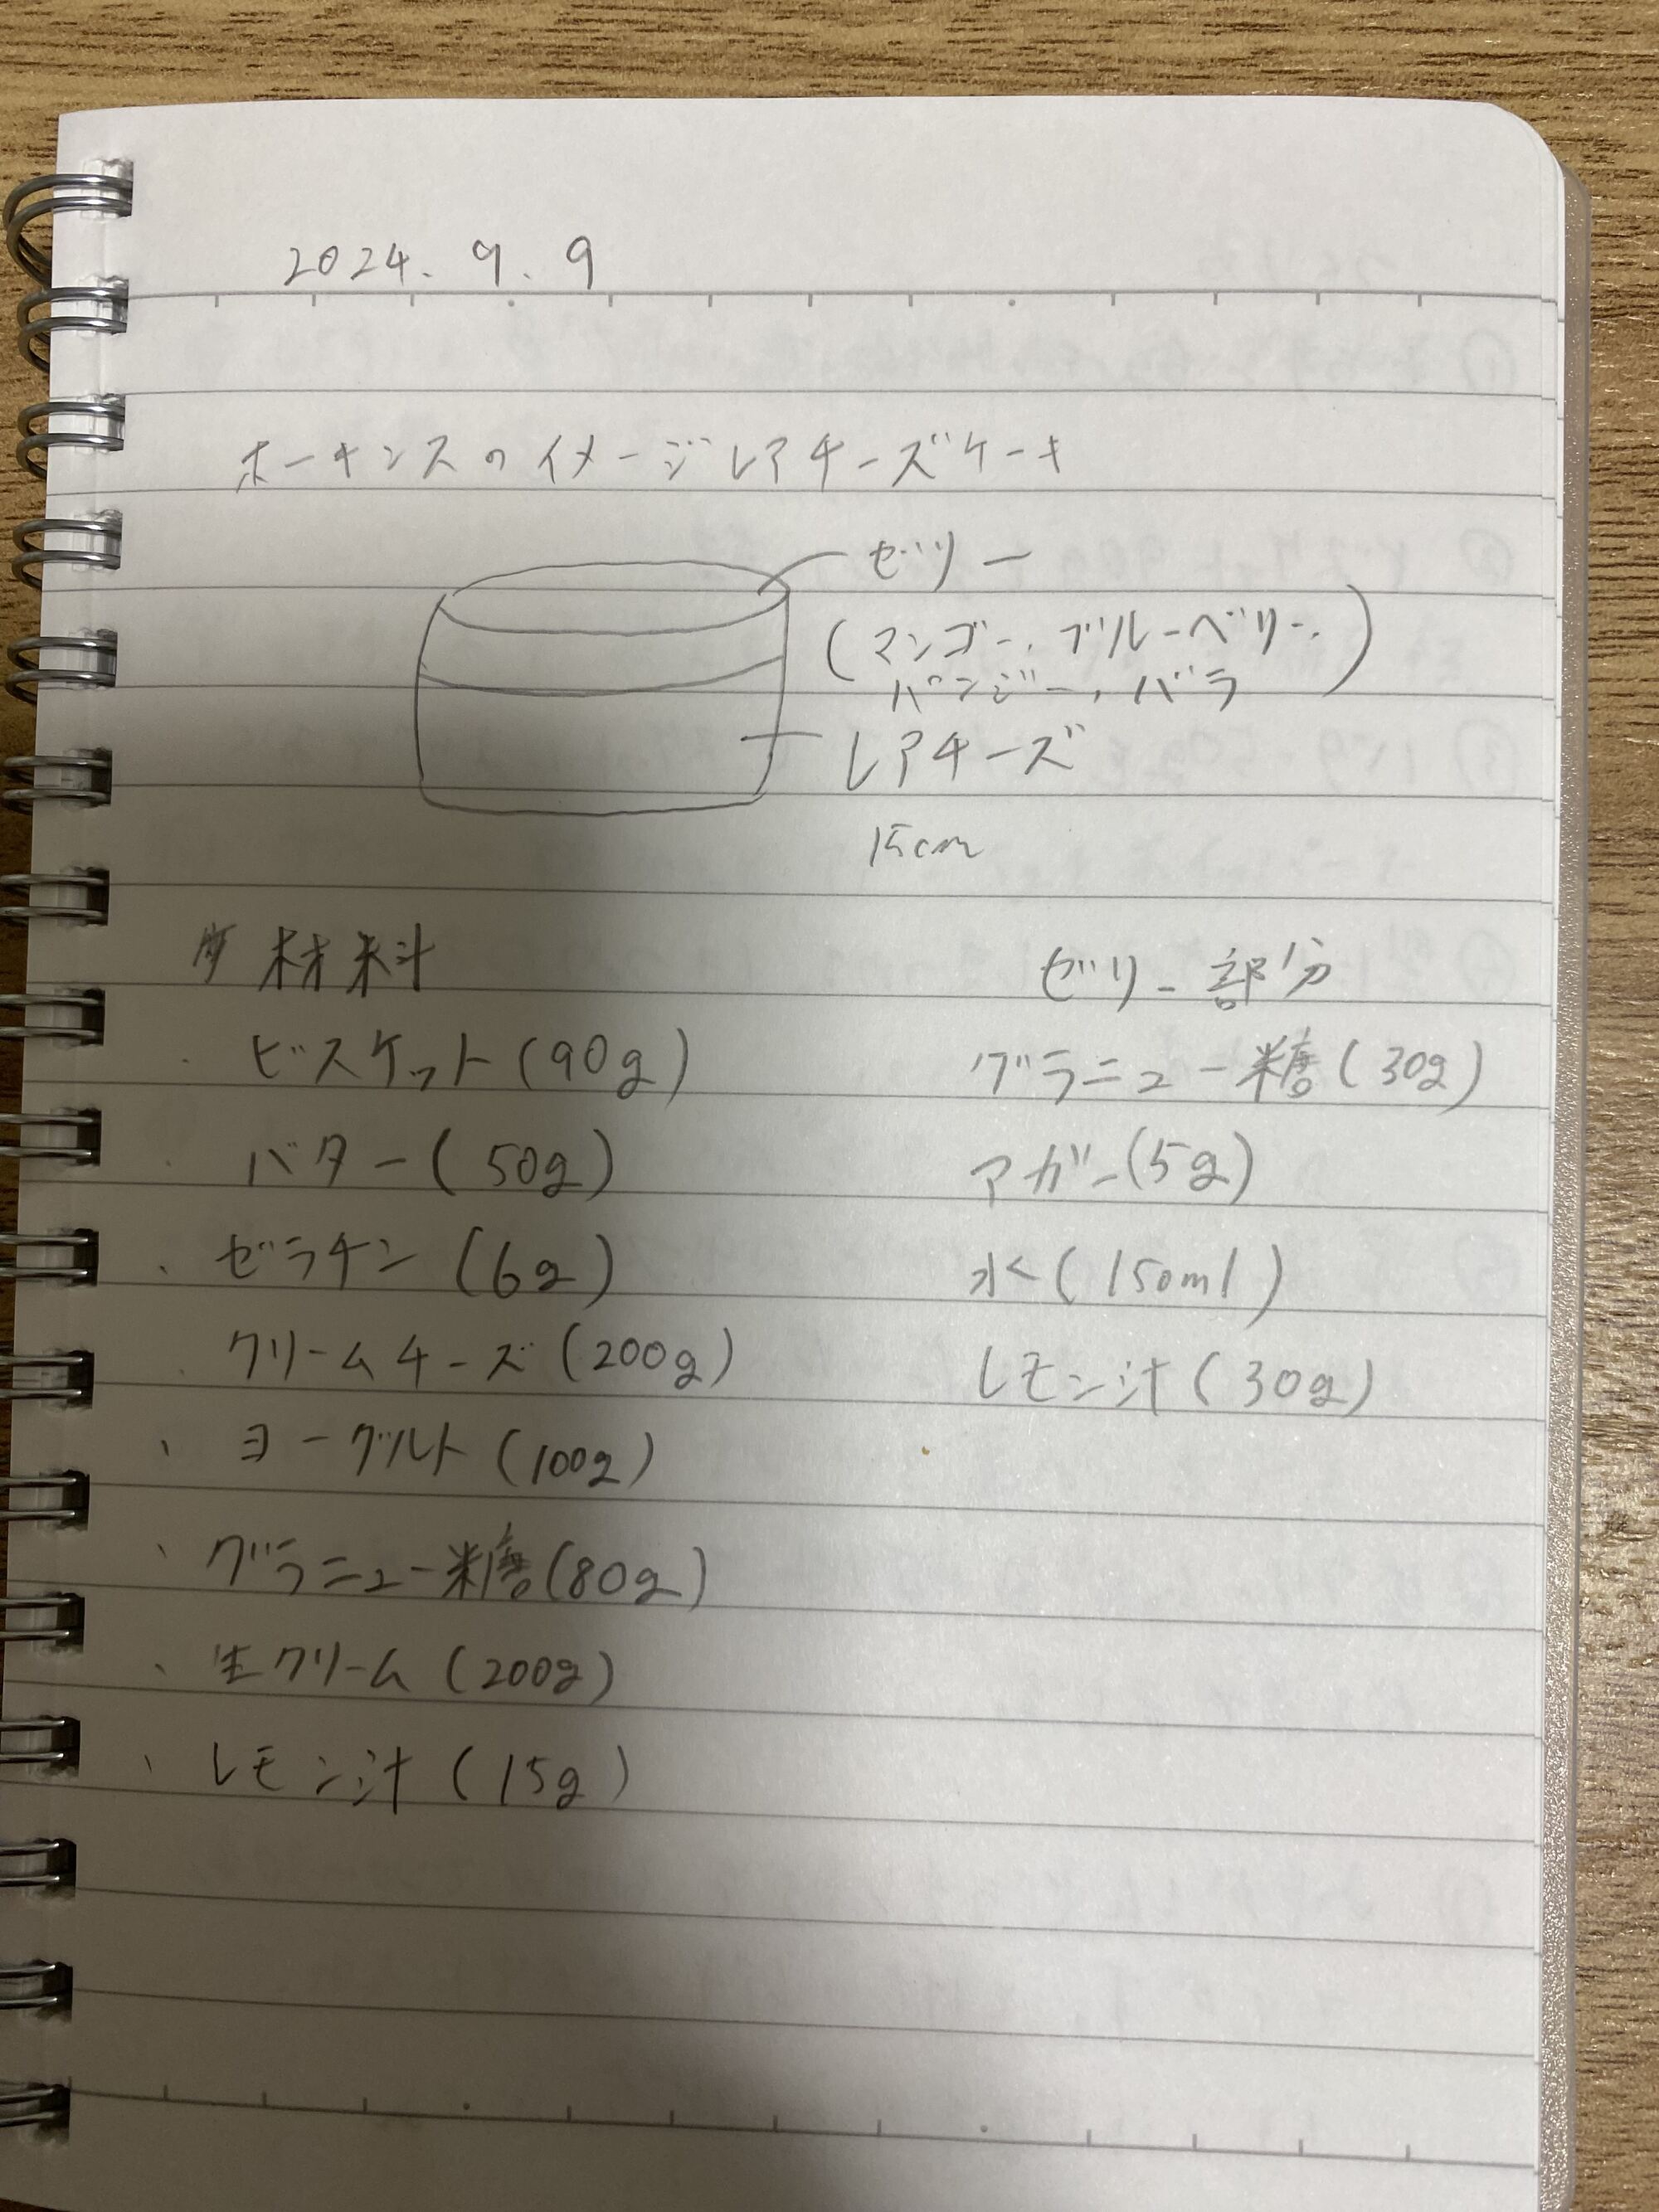 2024. 9. 9
ホーキンスのイメージレアチーズケーキ
ゼリー
(マンゴー、ブルーベリー、
パンジー、バラ)
レアチーズ
15cm
材料
ビスケット(90g)
バター(50g)
ゼラチン(6g)
クリームチーズ(200g)
ヨーグルト(100g)
グラニュー糖(80g)
生クリーム(200g)
レモン汁(15g)
ゼリー部分
グラニュー糖(30g)
アガー(5g)
水(150ml)
レモン汁(30g)